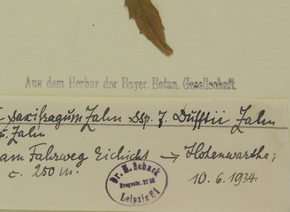 Aus dem Herbar der Bayer. Botan. Gesellschaft.
saxifragum Zahn ssp. J. Dufftii Zahn
Zahn
am Fahrweg Eichicht → Hohenwarthe,
c. 250 m.
10. 6. 1934
Dr. M. Schack
Leipzig